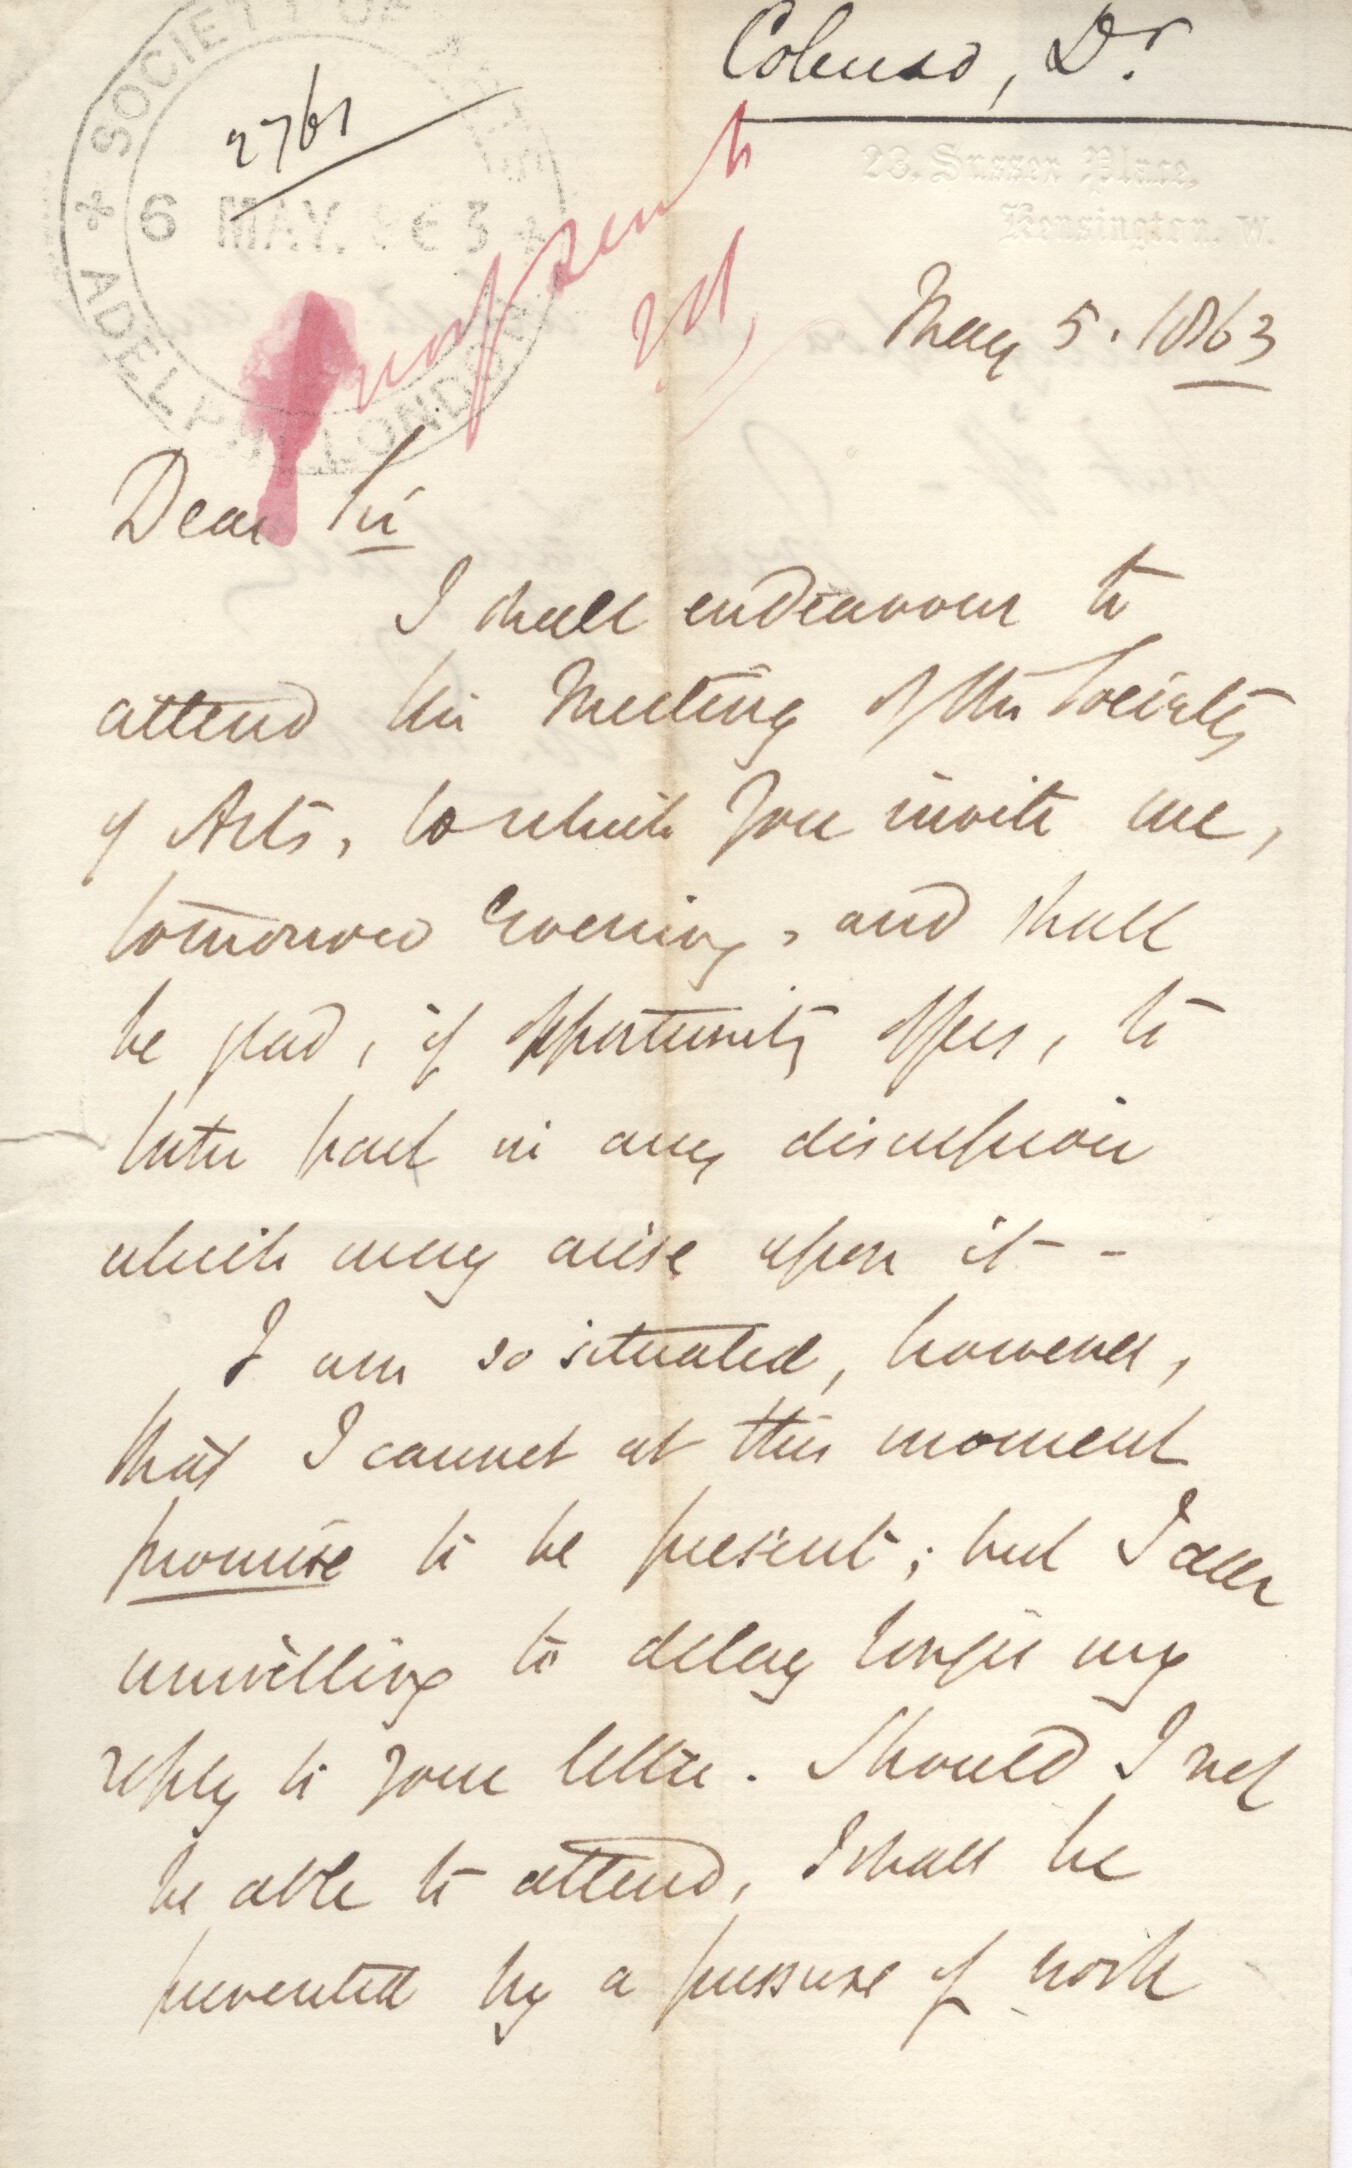 Colenso, Dr.
SOCIETY OF ARTS
2761
6 MAY. 1863
ADELPHI LONDON
23, Sussex Place,
Kensington. W.
May 5. 1863
Dear Sir
I shall endeavour to
attend the Meeting of the Society
of Arts, to which you invite me,
tomorrow Evening, and shall
be glad, if opportunity offers, to
take part in any discussion
which may arise upon it -
I am so situated, however,
that I cannot at this moment
promise to be present; but I am
unwilling to delay longer my
reply to your letter. Should I not
be able to attend, I shall be
prevented by a pressure of work